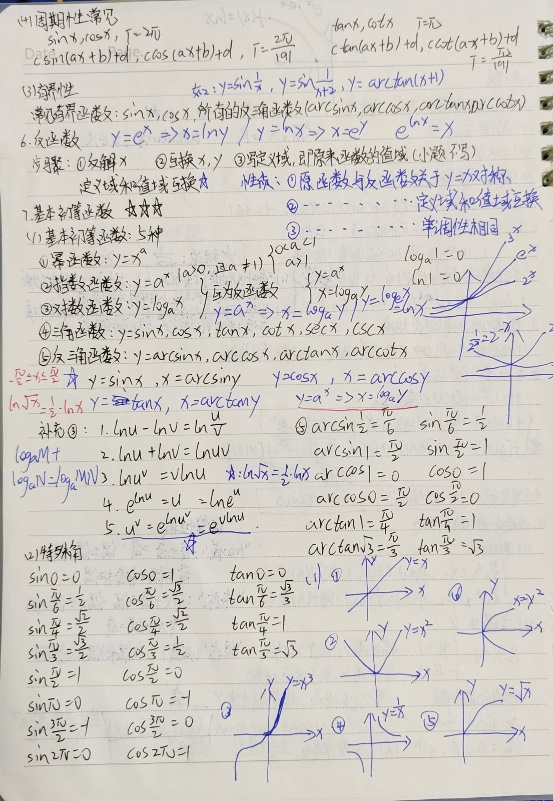 (4) 周期性常见
sinx, cosx, T=2π    tanx, cotx  T=π
csin(ax+b)+d, ccos(ax+b)+d, T=2π/|a|    ctan(ax+b)+d, ccot(ax+b)+d  T=π/|a|
(5)有界性    y=sin1/x, y=sin1/(x+2), y=arctan(x+1)
常见有界函数: sinx, cosx, 所有的反三角函数(arcsinx, arccosx, arctanx, arccotx)
6.反函数  y=e^x => x=lny / y=lnx => x=e^y    e^lnx=x
步骤: ①反解x  ②互换x,y  ③写定义域,即原来函数的值域(小题不写)
定义域和值域互换☆  性质: ①原函数与反函数关于y=x对称
②········定义域和值域互换
③········单调性相同
7.基本初等函数 ☆☆☆
(1)基本初等函数: 5种
①幂函数: y=x^a
②指数函数: y=a^x (a>0, 且a≠1) {0<a<1  a>1
③对数函数: y=logₐx
}互为反函数 {y=a^x  x=logₐy
y=a^x => x=logₐy
logₐ1=0
ln1=0
3^x
e^x
2^x
④三角函数: y=sinx, cosx, tanx, cotx, secx, cscx
⑤反三角函数: y=arcsinx, arccosx, arctanx, arccotx
-π/2≤x≤π/2  ☆ y=sinx, x=arcsiny    y=cosx, x=arccosy
ln√x=1/2·lnx  y=tanx, x=arctany    y=a^x => x=logₐy
补充③: 1. lnu-lnv=lnu/v
logₐM+logₐN=logₐMN
2. lnu+lnv=lnuv
3. lnu^v=vlnu  ☆: ln√x=1/2·lnx
4. e^lnu=u=lne^u
5. u^v=e^lnu^v=e^vlnu
⑤ arcsin1/2=π/6  sinπ/6=1/2
arcsin1=π/2  sinπ/2=1
arccos1=0  cos0=1
arccos0=π/2  cosπ/2=0
arctan1=π/4  tanπ/4=1
arctan√3=π/3  tanπ/3=√3
(2)特殊角
sin0=0  cos0=1  tan0=0
sinπ/6=1/2  cosπ/6=√3/2  tanπ/6=√3/3
sinπ/4=√2/2  cosπ/4=√2/2  tanπ/4=1
sinπ/3=√3/2  cosπ/3=1/2  tanπ/3=√3
sinπ/2=1  cosπ/2=0
sinπ=0  cosπ=-1
sin3π/2=-1  cos3π/2=0
sin2π=0  cos2π=1
(1) ① y=x
② y=x²
③ y=x³
④ y=1/x
⑤ y=√x
⑥ x=y²